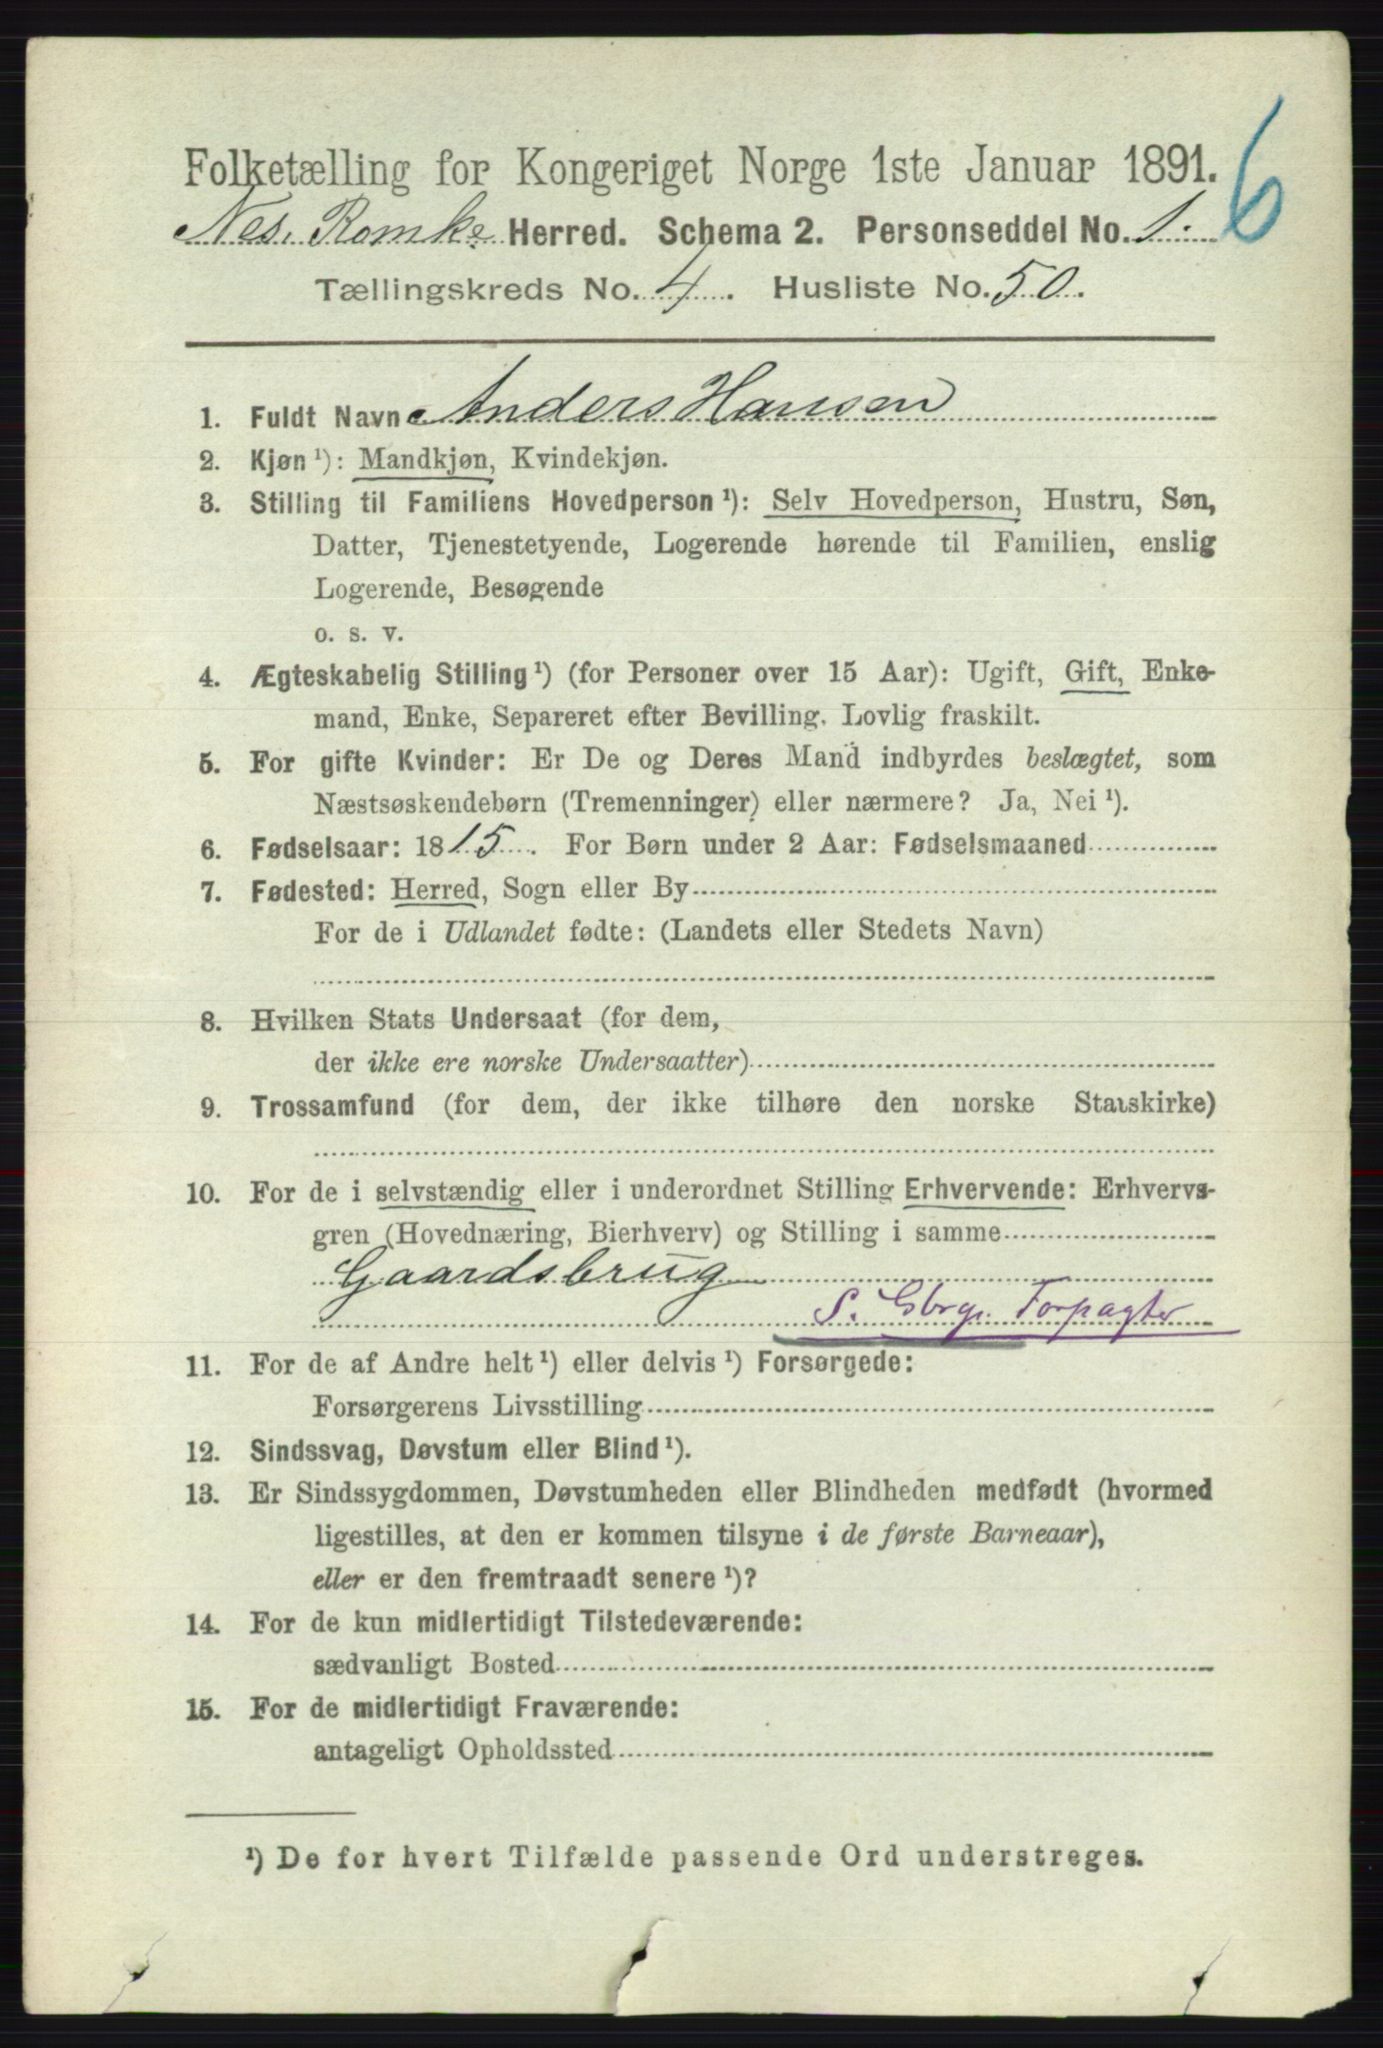 Folketælling for Kongeriget Norge 1ste Januar 1891.
6
Nes. Romke. Herred. Schema 2. Personseddel No. 1.
Tællingskreds No. 4. Husliste No. 50.
1. Fuldt Navn Anders Hansen
2. Kjøn ¹): Mandkjøn, Kvindekjøn.
3. Stilling til Familiens Hovedperson ¹): Selv Hovedperson, Hustru, Søn,
Datter, Tjenestetyende, Logerende hørende til Familien, enslig
Logerende, Besøgende
o. s. v.
4. Ægteskabelig Stilling ¹) (for Personer over 15 Aar): Ugift, Gift, Enke-
mand, Enke, Separeret efter Bevilling. Lovlig fraskilt.
5. For gifte Kvinder: Er De og Deres Mand indbyrdes beslægtet, som
Næstsøskendebørn (Tremenninger) eller nærmere? Ja, Nei ¹).
6. Fødselsaar: 1815. For Børn under 2 Aar: Fødselsmaaned
7. Fødested: Herred, Sogn eller By
For de i Udlandet fødte: (Landets eller Stedets Navn)
8. Hvilken Stats Undersaat (for dem,
der ikke ere norske Undersaatter)
9. Trossamfund (for dem, der ikke tilhøre den norske Statskirke)
10. For de i selvstændig eller i underordnet Stilling Erhvervende: Erhvervs-
gren (Hovednæring, Bierhverv) og Stilling i samme
Gaardsbrug
S. Gbrg. Forpagter
11. For de af Andre helt ¹) eller delvis ¹) Forsørgede:
Forsørgerens Livsstilling
12. Sindssvag, Døvstum eller Blind ¹).
13. Er Sindssygdommen, Døvstumheden eller Blindheden medfødt (hvormed
ligestilles, at den er kommen tilsyne i de første Barneaar),
eller er den fremtraadt senere ¹)?
14. For de kun midlertidigt Tilstedeværende:
sædvanligt Bosted
15. For de midlertidigt Fraværende:
antageligt Opholdssted
¹) De for hvert Tilfælde passende Ord understreges.